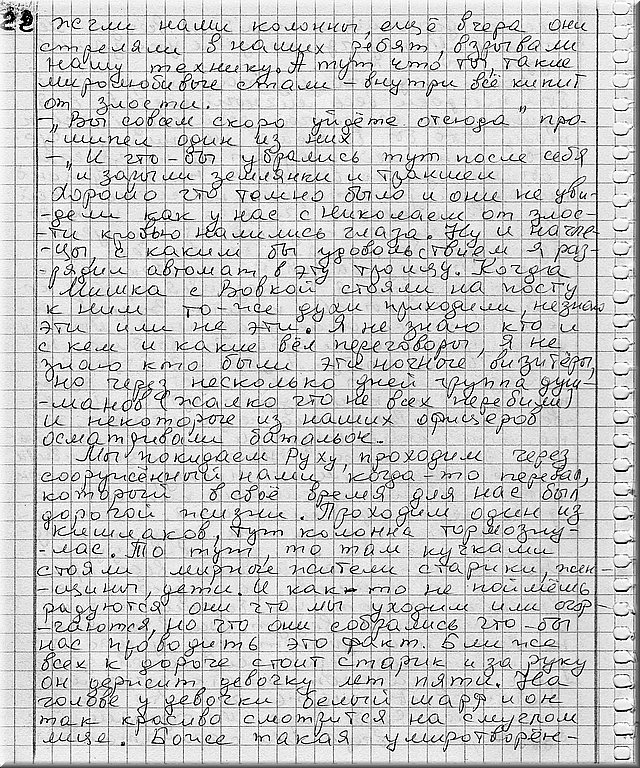 22 жгли нами колонны, ещё вчера они
стреляли в наших ребят, взрывали
нашу технику. А тут что ты, такие
миролюбивые стали - внутри всё кипит
от злости.
- „Вы совсем скоро уйдёте отсюда" про-
-шипел один из них
- „И что-бы убрались тут после себя
и зарыли землянки и траншеи
Хорошо что темно было и они не уви-
-дели как у нас с Николаем от злос-
-ти кровью налились глаза. Ну и нагле-
-цы, с каким бы удовольствием я раз-
-рядил автомат в эту троицу. Когда
Мишка с Вовкой стояли на посту
к ним то-же духи приходили, незнаю
эти или не эти. Я не знаю кто и
с кем и какие вёл переговоры, я не
знаю кто были эти ночные визитёры,
но через несколько дней группа душ-
-манов (жалко что не всех перебили)
и некоторые из наших офицеров
осматривали батальон.
Мы покидаем Руху, проходим через
сооружённый нами когда-то перевал,
который в своё время для нас был
дорогой жизни. Проходим один из
кишлаков, тут колонна тормозну-
-лас. То тут, то там кучками
стояли мирные жители старики, жен-
-щины, дети. И как-то не поймёшь
радуются они что мы уходим или огор-
-чаются, но что они собрались что-бы
нас проводить это факт. Ближе
всех к дороге стоит старик и за руку
он держит девочку лет пяти. На
голове у девочки белый шарф и он
так красиво смотрится на смуглом
лице. Более такая умиротворён-